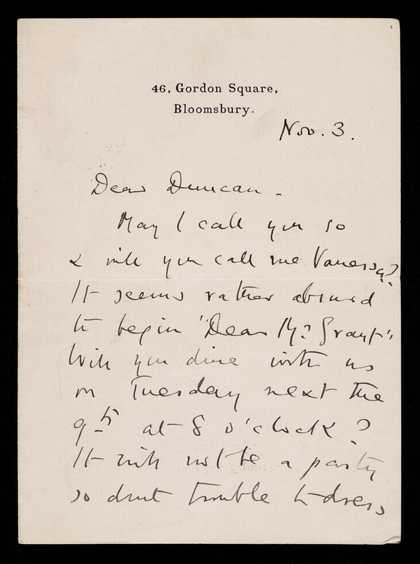 46, Gordon Square,
Bloomsbury.
Nov. 3.
Dear Duncan -
May I call you so
& will you call me Vanessa?
It seems rather absurd
to begin "Dear Mr Grant".
Will you dine with us
on Tuesday next the
9th at 8 o'clock?
It will not be a party
so dont trouble to dress